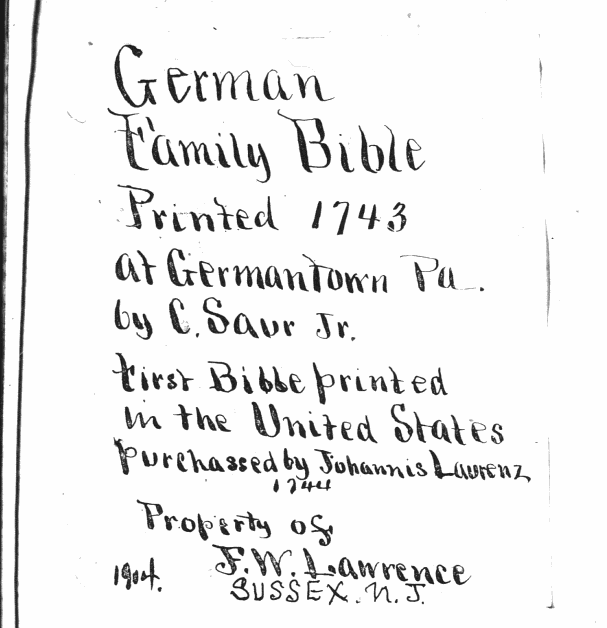 German
Family Bible
Printed 1743
at Germantown Pa.
by C. Saur Jr.
first Bible printed
in the United States
purchassed by Johannis Laurenz
1744
Property of
F. W. Lawrence
1904. SUSSEX. N. J.